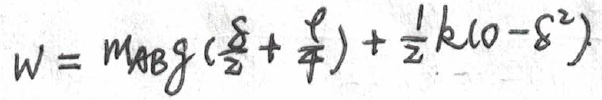 W = m_{AB}g(\frac{δ}{2} + \frac{ρ}{4}) + \frac{1}{2}k(0-δ^2)